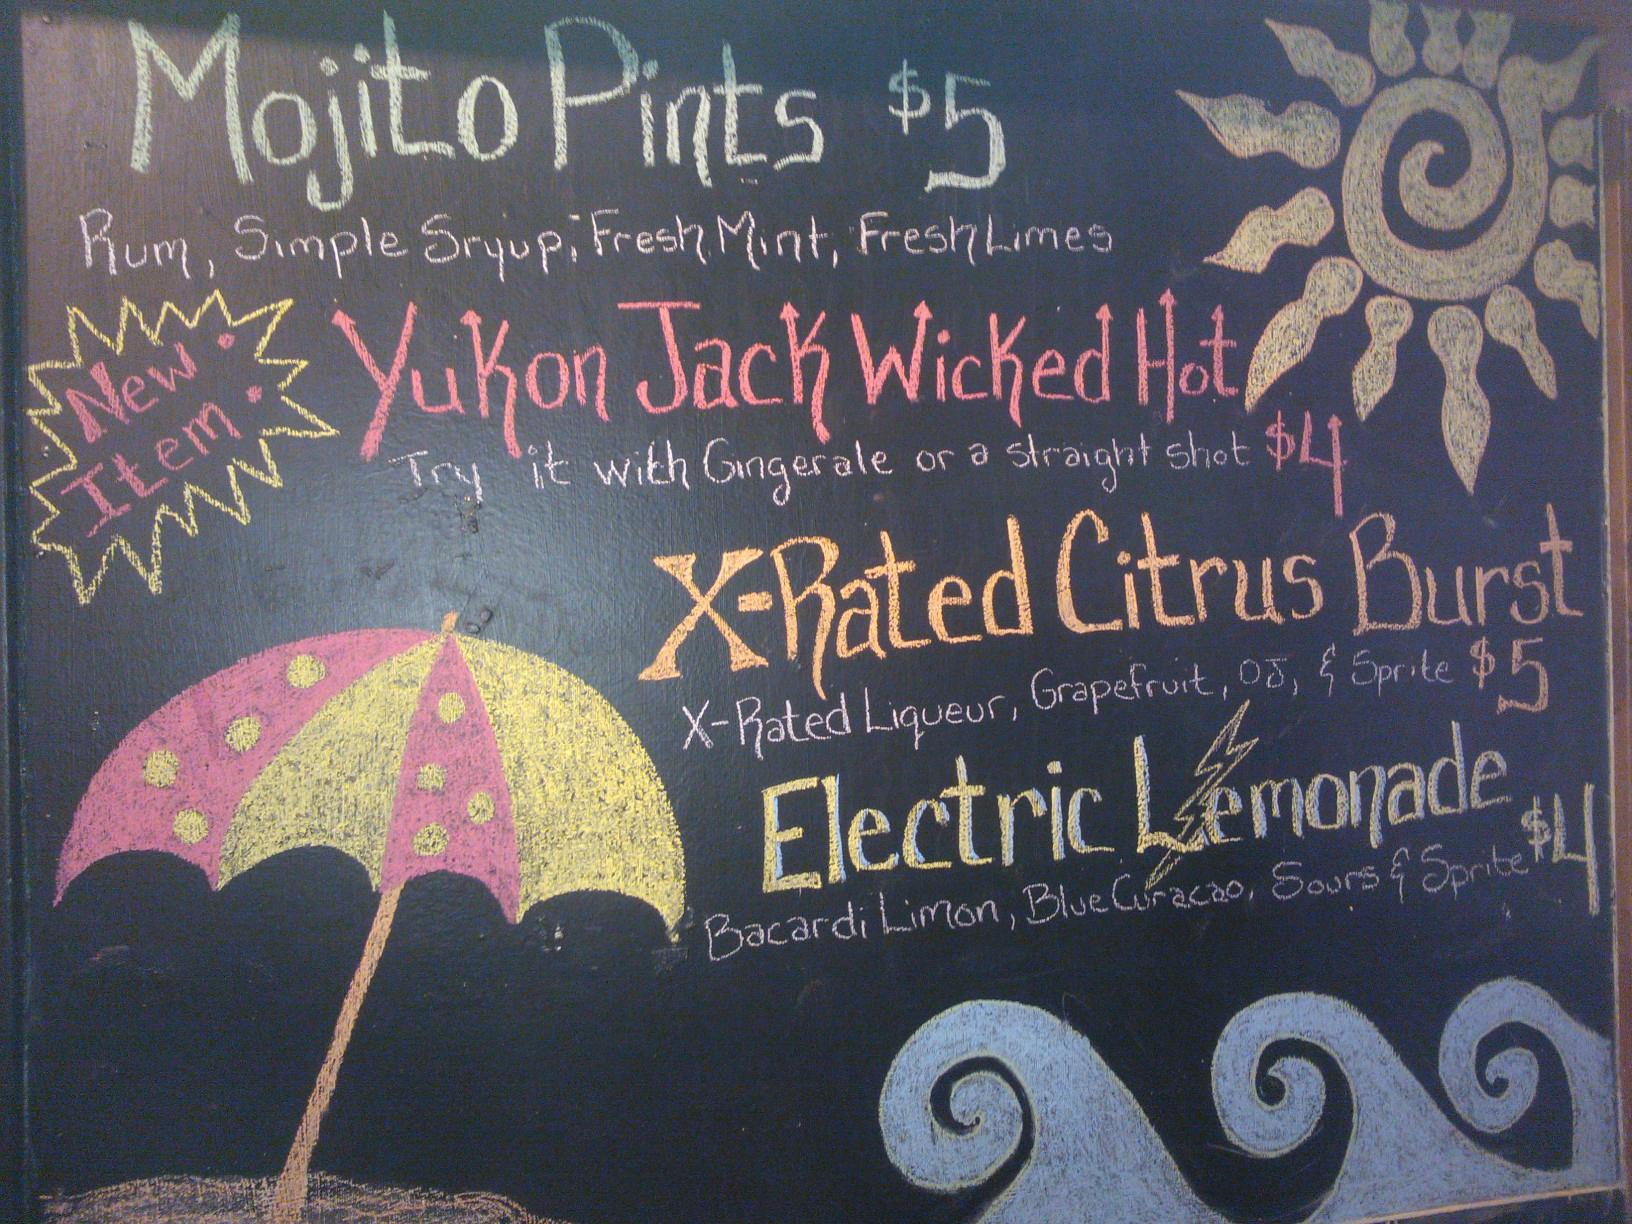 Mojito Pints $5
Rum, Simple Sryup, Fresh Mint, Fresh Limes
New Item!
Yukon Jack Wicked Hot
Try it with Gingerale or a straight shot $4
X-Rated Citrus Burst
X-Rated Liqueur, Grapefruit, OJ, & Sprite $5
Electric Lemonade
Bacardi Limon, Blue Curacao, Sours & Sprite $4